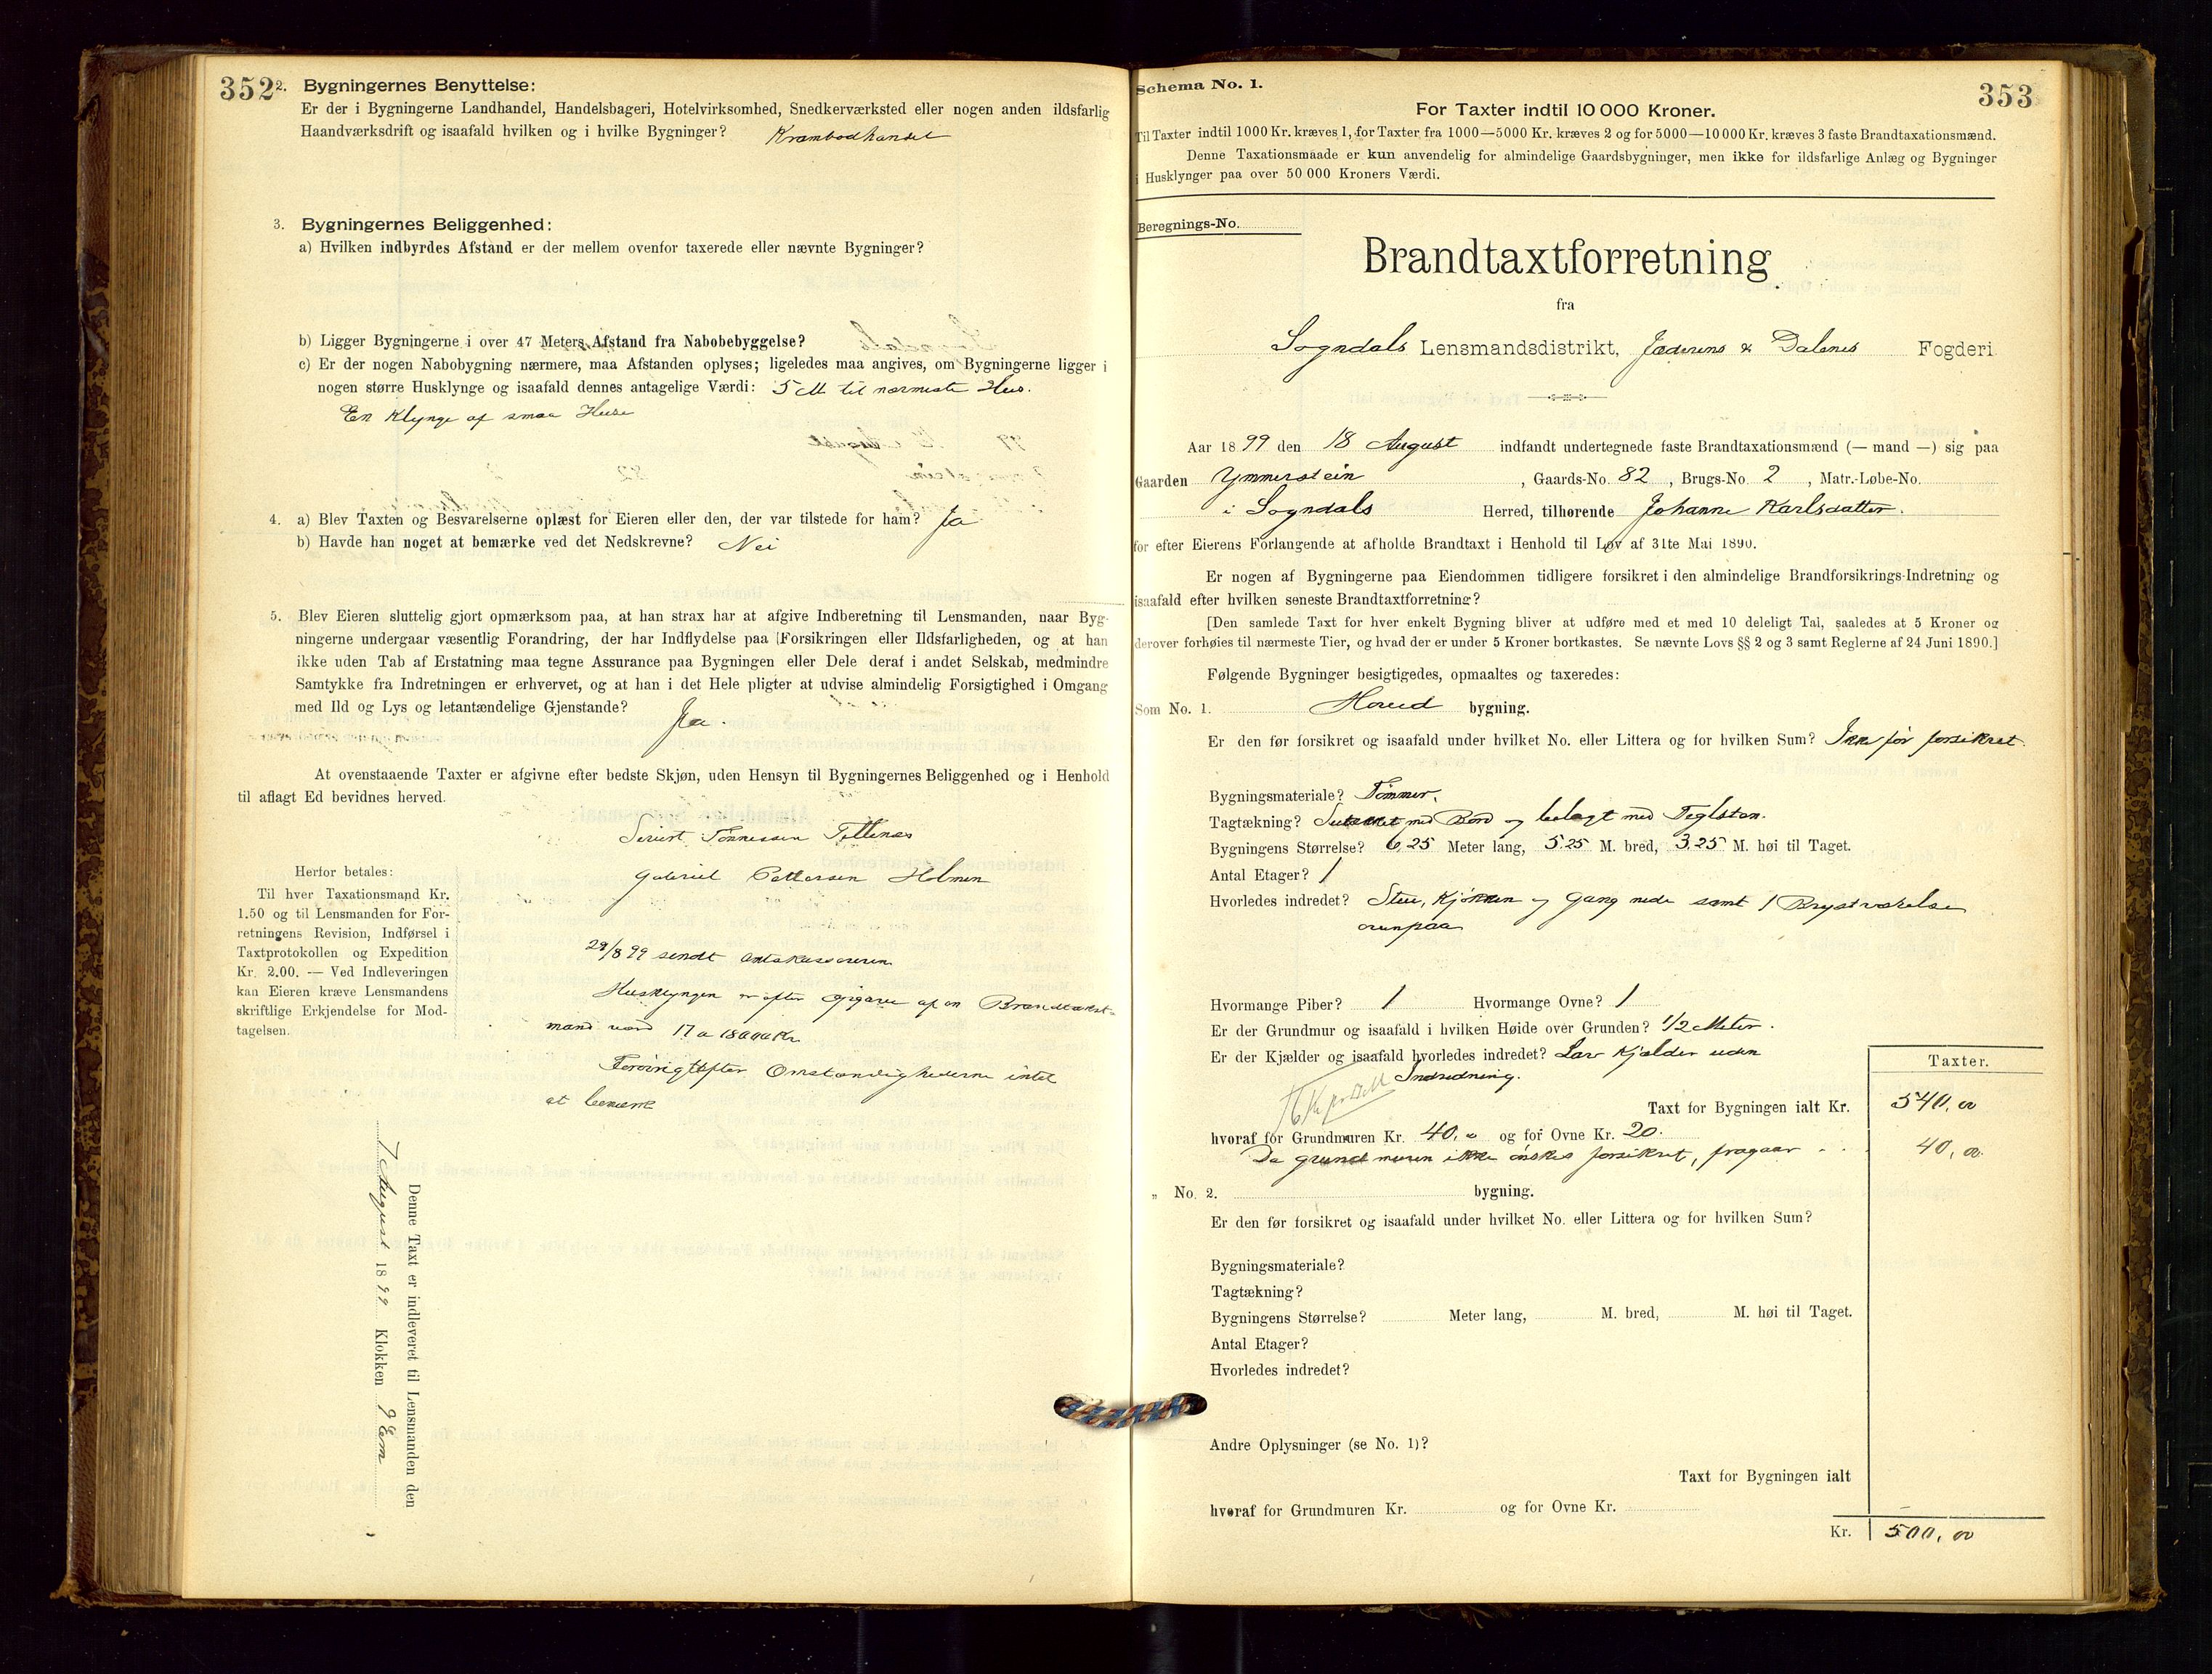 352
2. Bygningernes Benyttelse:
Er der i Bygningerne Landhandel, Handelsbageri, Hotelvirksomhed, Snedkerværksted eller nogen anden ildsfarlig
Haandværksdrift og isaafald hvilken og i hvilke Bygninger? Krambodhandel
3. Bygningernes Beliggenhed:
a) Hvilken indbyrdes Afstand er der mellem ovenfor taxerede eller nævnte Bygninger?
b) Ligger Bygningerne i over 47 Meters Afstand fra Nabobebyggelse?
c) Er der nogen Nabobygning nærmere, maa Afstanden oplyses; ligeledes maa angives, om Bygningerne ligger i
nogen større Husklynge og isaafald dennes antagelige Værdi: 5 M til nærmeste Hus.
En Klynge af smaa Huse
4. a) Blev Taxten og Besvarelserne oplæst for Eieren eller den, der var tilstede for ham? Ja
b) Havde han noget at bemærke ved det Nedskrevne? Nei
5. Blev Eieren sluttelig gjort opmærksom paa, at han strax har at afgive Indberetning til Lensmanden, naar Byg-
ningerne undergaar væsentlig Forandring, der har Indflydelse paa Forsikringen eller Ildsfarligheden, og at han
ikke uden Tab af Erstatning maa tegne Assurance paa Bygningen eller Dele deraf i andet Selskab, medmindre
Samtykke fra Indretningen er erhvervet, og at han i det Hele pligter at udvise almindelig Forsigtighed i Omgang
med Ild og Lys og letantændelige Gjenstande? Ja.
At ovenstaaende Taxter er afgivne efter bedste Skjøn, uden Hensyn til Bygningernes Beliggenhed og i Henhold
til aflagt Ed bevidnes herved.
Sivert Tønnessen
Gabriel Pettersen Holmen
Herfor betales:
Til hver Taxationsmand Kr.
1.50 og til Lensmanden for For-
retningens Revision, Indførsel i
Taxtprotokollen og Expedition
Kr. 2.00. — Ved Indleveringen
kan Eieren kræve Lensmandens
skriftlige Erkjendelse for Mod-
tagelsen.
29/8 99 sendt
Husklyngen er efter Opgave af en Brandtaxt-
mand værd 17 a 18000 Kr.
Forøvrigt efter Omstændighederne intet
at bemerke
Denne Taxt er indleveret til Lensmanden den
7 August 1899 Klokken 9 Em
353
Schema No. 1.
For Taxter indtil 10 000 Kroner.
Til Taxter indtil 1000 Kr. kræves 1, for Taxter fra 1000—5000 Kr. kræves 2 og for 5000—10 000 Kr. kræves 3 faste Brandtaxationsmænd.
Denne Taxationsmaade er kun anvendelig for almindelige Gaardsbygninger, men ikke for ildsfarlige Anlæg og Bygninger
i Husklynger paa over 50 000 Kroners Værdi.
Beregnings-No.
Brandtaxtforretning
fra
Sogndals Lensmandsdistrikt, Jæderens & Dalenes Fogderi
Aar 1899 den 18 August indfandt undertegnede faste Brandtaxationsmænd (— mand —) sig paa
Gaarden Ymmerstein, Gaards-No. 82, Brugs-No. 2, Matr.-Løbe-No.
i Sogndals Herred, tilhørende Johanne Karlsdatter.
for efter Eierens Forlangende at afholde Brandtaxt i Henhold til Lov af 31te Mai 1890.
Er nogen af Bygningerne paa Eiendommen tidligere forsikret i den almindelige Brandforsikrings-Indretning og
isaafald efter hvilken seneste Brandtaxtforretning?
[Den samlede Taxt for hver enkelt Bygning bliver at udføre med et med 10 deleligt Tal, saaledes at 5 Kroner og
derover forhøies til nærmeste Tier, og hvad der er under 5 Kroner bortkastes. Se nævnte Lovs §§ 2 og 3 samt Reglerne af 24 Juni 1890.]
Følgende Bygninger besigtigedes, opmaaltes og taxeredes:
Som No. 1. Hoved bygning.
Er den før forsikret og isaafald under hvilket No. eller Littera og for hvilken Sum? Ikke før forsikret.
Bygningsmateriale? Tømmer.
Tagtækning? med Bord og belagt med Teglsten.
Bygningens Størrelse? 6,25 Meter lang, 5.25 M. bred, 3.25 M. høi til Taget.
Antal Etager? 1
Hvorledes indredet? Stue, Kjøkken og Gang nede samt 1 Brystværelse
ovenpaa
Hvormange Piber? 1 Hvormange Ovne? 1
Er der Grundmur og isaafald i hvilken Høide over Grunden? 1/2 Meter.
Er der Kjælder og isaafald hvorledes indredet? Lav Kjælder uden
Indredning.
Taxter.
Taxt for Bygningen ialt Kr. 540,00
hvoraf for Grundmuren Kr. 40,00 og for Ovne Kr. 20.
Da grundmuren ikke ønskes forsikret, fragaar 40,00
" No. 2. bygning.
Er den før forsikret og isaafald under hvilket No. eller Littera og for hvilken Sum?
Bygningsmateriale?
Tagtækning?
Bygningens Størrelse? Meter lang, M. bred, M. høi til Taget.
Antal Etager?
Hvorledes indredet?
Andre Oplysninger (se No. 1)?
Taxt for Bygningen ialt
hvoraf for Grundmuren Kr. og for Ovne Kr.
Kr. 500,00